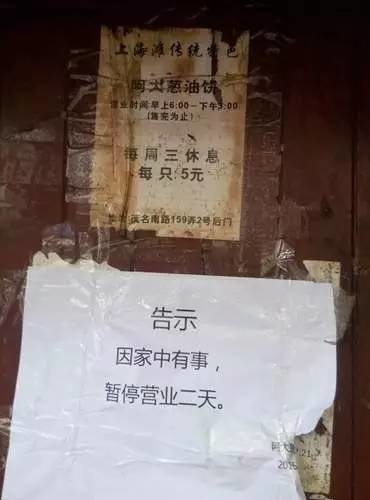 上海滩传统特色
阿大葱油饼
营业时间早上6:00－下午3:00
(售完为止)
每周三休息
每只:5元
茂名南路159弄2号后门
告示
因家中有事，
暂停营业二天。
阿大